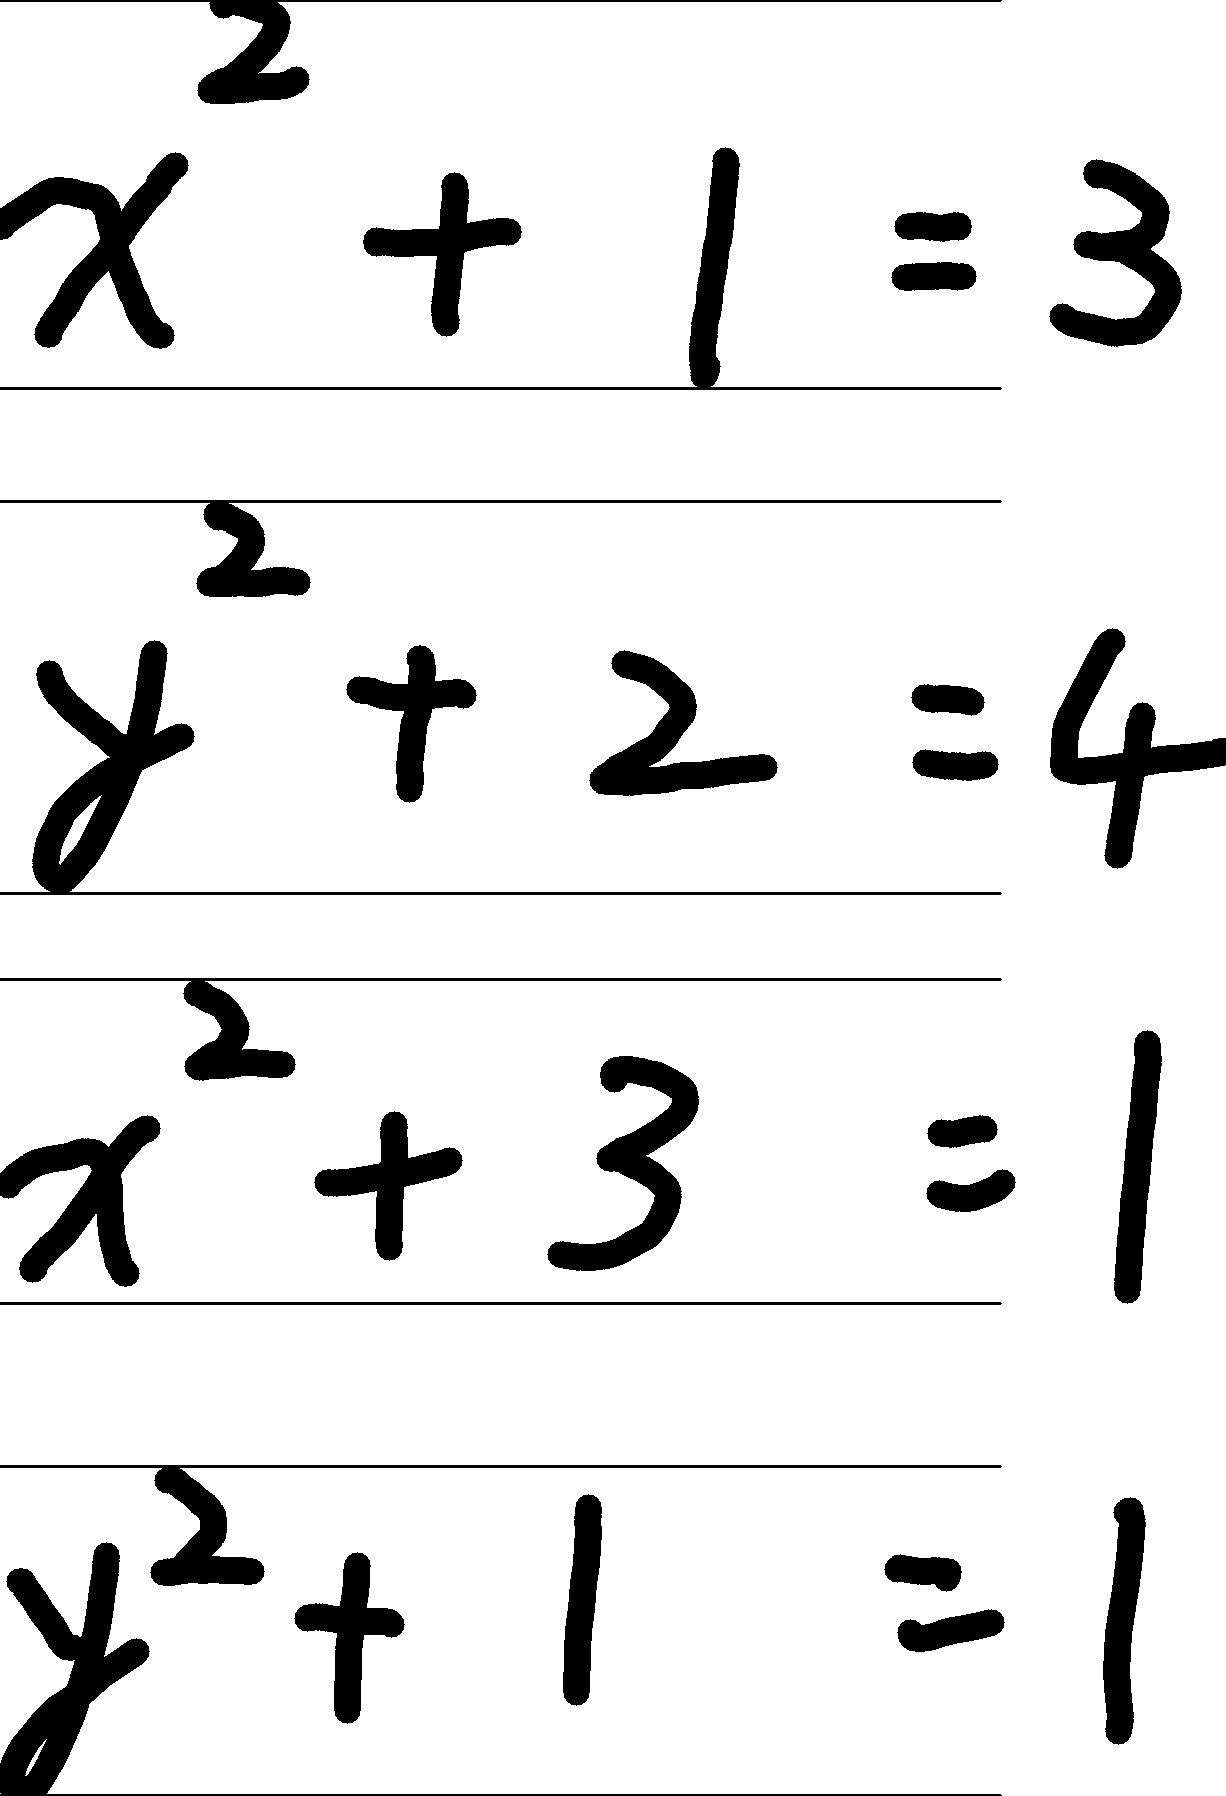 x² + 1 = 3
y² + 2 = 4
x² + 3 = 1
y² + 1 = 1